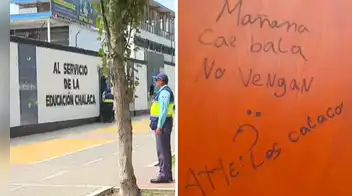 AL SERVICIO
DE LA
EDUCACIÓN CHALACA
Mañana
cae bala
No vengan
ATTE: Los calaco